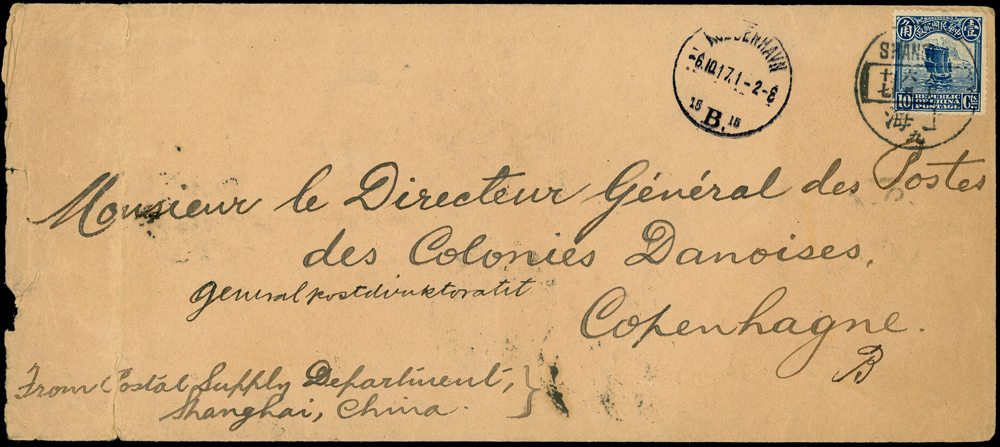 KØBENHAVN
6.10.17.1-2-6
15 B. 15
中華民國郵政
角 壹
10 REPUBLIC OF CHINA POSTAGE Cts
SHANG
海
Monsieur le Directeur Général des Postes
des Colonies Danoises,
generalpostdirektoratet
Copenhagne.
B
From Postal Supply Department,
Shanghai, China.